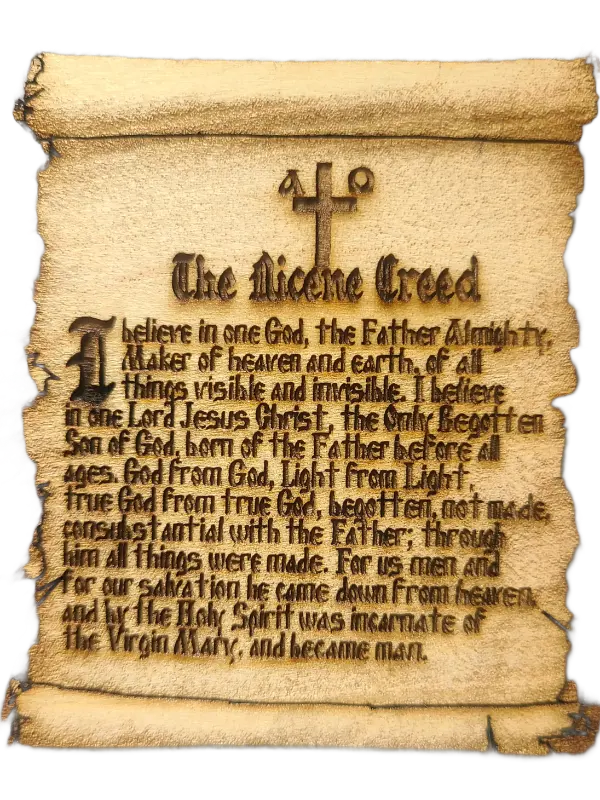 A O
The Nicene Creed
I believe in one God, the Father Almighty,
Maker of heaven and earth, of all
things visible and invisible. I believe
in one Lord Jesus Christ, the Only Begotten
Son of God, born of the Father before all
ages. God from God, Light from Light,
true God from true God, begotten, not made,
consubstantial with the Father; through
him all things were made. For us men and
for our salvation he came down from heaven,
and by the Holy Spirit was incarnate of
the Virgin Mary, and became man.